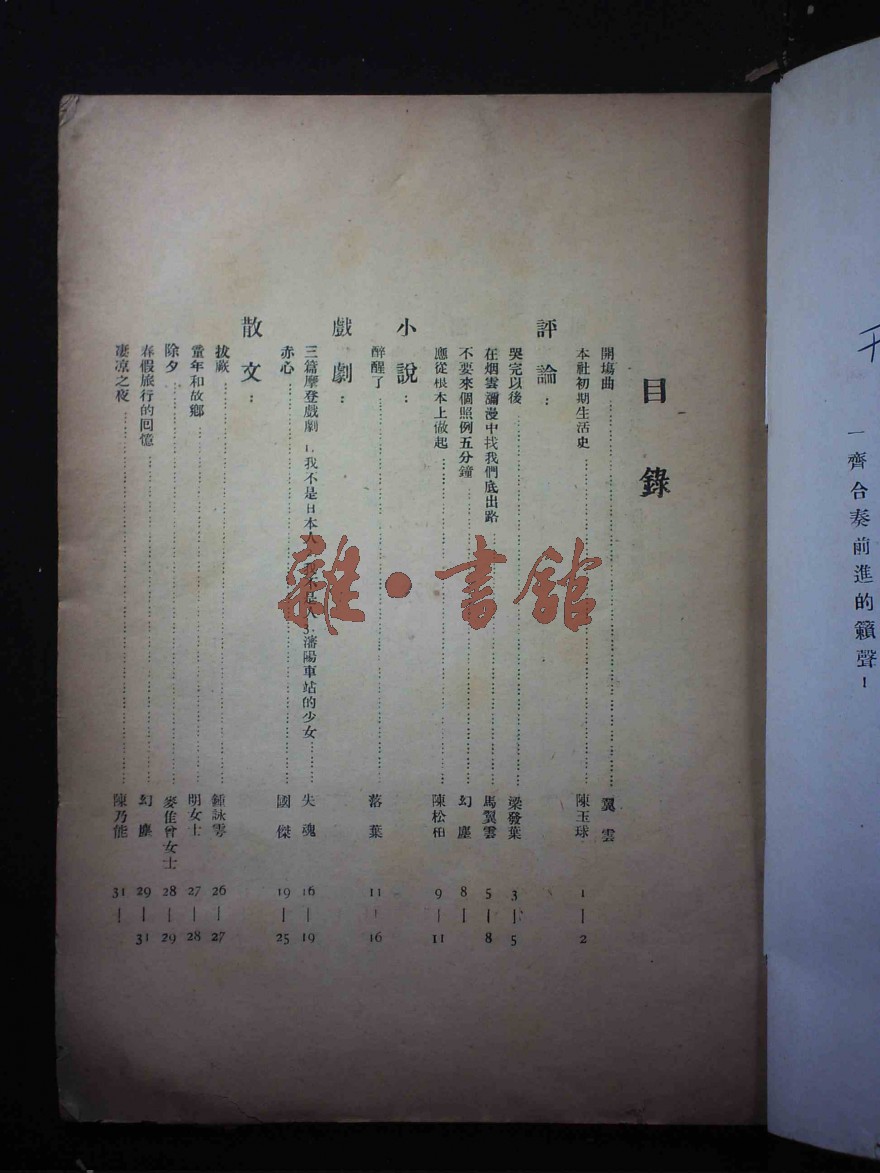 一齊合奏前進的籟聲!
目錄
開塲曲……翼雲
本社初期生活史……陳玉球 1—2
評論:
哭完以後……梁發葉 3—5
在烟雲瀰漫中找我們底出路……馬翼雲 5—8
不要來個照例五分鐘……幻塵 8—
應從根本上做起……陳松柏 9—11
小說:
醉醒了……落葉 11—16
戲劇:
三篇摩登戲劇 1.我不是日本人 瀋陽車站的少女……失魂 16—19
赤心……國傑 19—25
散文:
拔蕨……鍾詠雩 26—27
童年和故鄉……明女士 27—28
除夕……麥隹曾女士 28—29
春假旅行的回憶……幻塵 29—31
凄凉之夜……陳乃能 31—
雜·書館